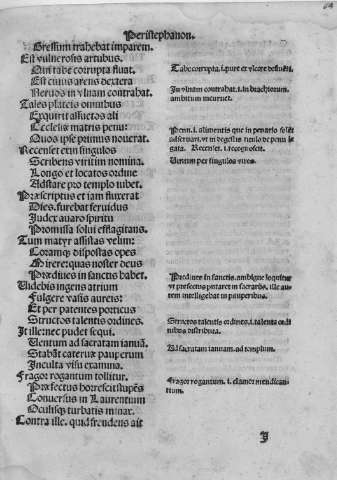 Peristephanon.
Gressum trahebat imparem.
Est vulnerosis artubus.
Qui tabe corrupta fluat.
Est cuius arens dextera
Neruos in vlnam contrahat.
Tales plateis omnibus
Exquirit assuetos ali
Ecclesiæ matris penu:
Quos ipse primus nouerat.
Recenset exin singulos
Scribens viritim nomina.
Longo et locatos ordine
Adstare pro templo iubet.
Præscriptus et iam fluxerat
Dies. furebat feruidus
Iudex auaro spiritu
Promissa solui efflagitans.
Tum matyr assistas velim:
Coramq; dispositas opes
Mirere: quas noster deus
Prædiues in sanctis habet.
Uidebis ingens atrium
Fulgere vasis aureis:
Et per patentes porticus
Structos talentis ordines.
It ille: nec pudet sequi.
Uentum ad sacratam ianuā.
Stabāt cateruæ pauperum
Inculta visu examina.
Fragor rogantum tollitur.
Præfectus horrescit stupēs
Conuersus in Laurentium
Oculisq; turbatis minax.
Contra ille. quid frendens ait
Tabe corrupta .i. pure et vlcere
In vlnam contrahat .i. in brachiorum.
ambitum incuruet.
Penu .i. alimentis que in penario
adseruant. vt in degestis
gata. Recenset .i. recognoscit.
Uiritim per singulos viros.
Prædiues in sanctis. ambigue loquitur
vt prefectus putaret in sacrariis. ille
tem intelligebat in pauperibus.
Structos talentis ordines .i. talenta
nibus distributa.
Ad sacratam ianuam. ad templum.
Fragor rogantum .i. clamor mendican
tium.
J